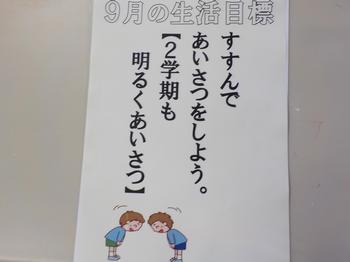 9月の生活目標
すすんで
あいさつをしよう。
【2学期も
明るくあいさつ】